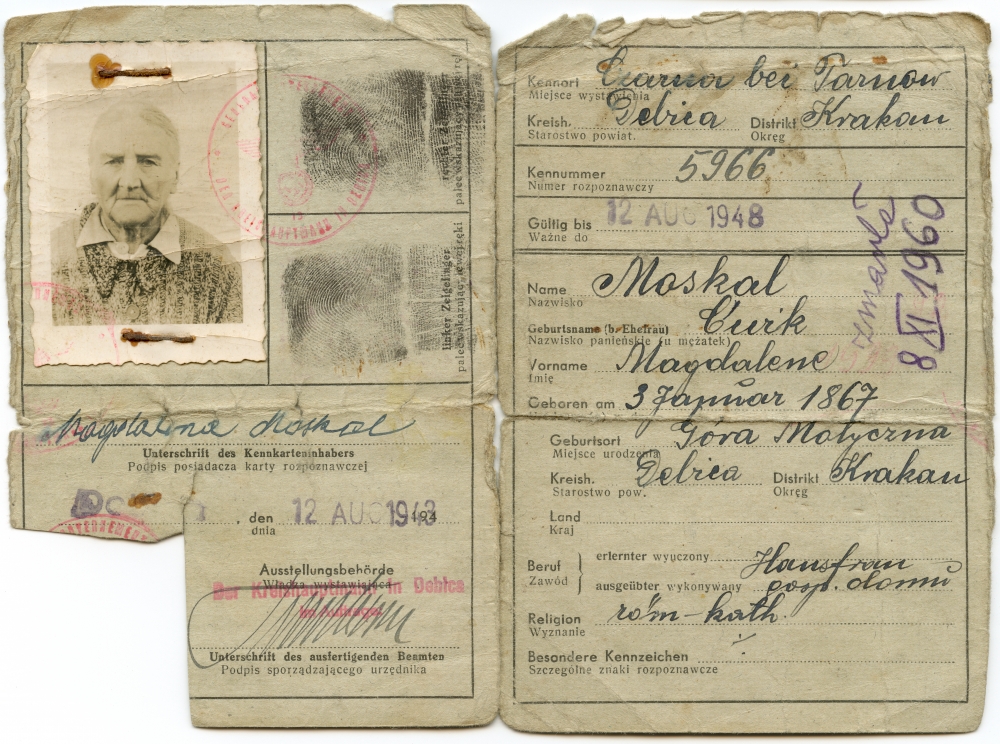 rechter Zeigefinger
palec wskazujący
linker Zeigefinger
palec wskazujący lewej ręki
Magdalena Moskal
Unterschrift des Kennkarteninhabers
Podpis posiadacza karty rozpoznawczej
, den 12 AUG 1943 194
dnia
Ausstellungsbehörde
Władza wystawiająca
Der Kreishauptmann in Debica
Im Auftrage
Unterschrift des ausfertigenden Beamten
Podpis sporządzającego urzędnika
Kennort Czarna bei Tarnow
Miejsce wystawienia
Kreish. Debica Distrikt Krakau
Starostwo powiat. Okręg
Kennummer 5966
Numer rozpoznawczy
Gültig bis 12 AUG 1948
Ważne do
Name Moskal
Nazwisko
Geburtsname (b. Ehefrau) Cwik
Nazwisko panieńskie (u mężatek)
Vorname Magdalene
Imię
Geboren am 3 Januar 1867
zmarła
8 XI 1960
Geburtsort Góra Motyczna
Miejsce urodzenia
Kreish. Debica Distrikt Krakau
Starostwo pow. Okręg
Land
Kraj
Beruf erlernter wyuczony Hausfrau
Zawód ausgeübter wykonywany gosp. domu
Religion röm-kath.
Wyznanie
Besondere Kennzeichen
Szczególne znaki rozpoznawcze